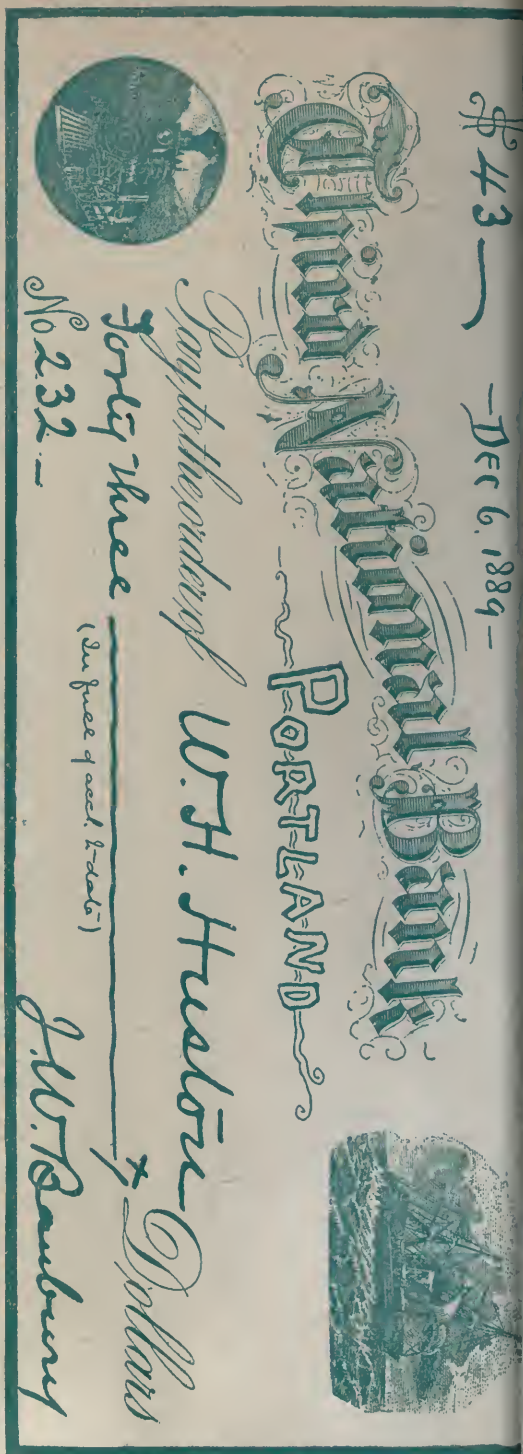 $43 — -DEC 6. 1889-
Union National Bank,
PORTLAND
Pay to the order of W. H. Huston
Forty Three Dollars
(In full of acct. to date)
No 232 -
J. W. Banbury